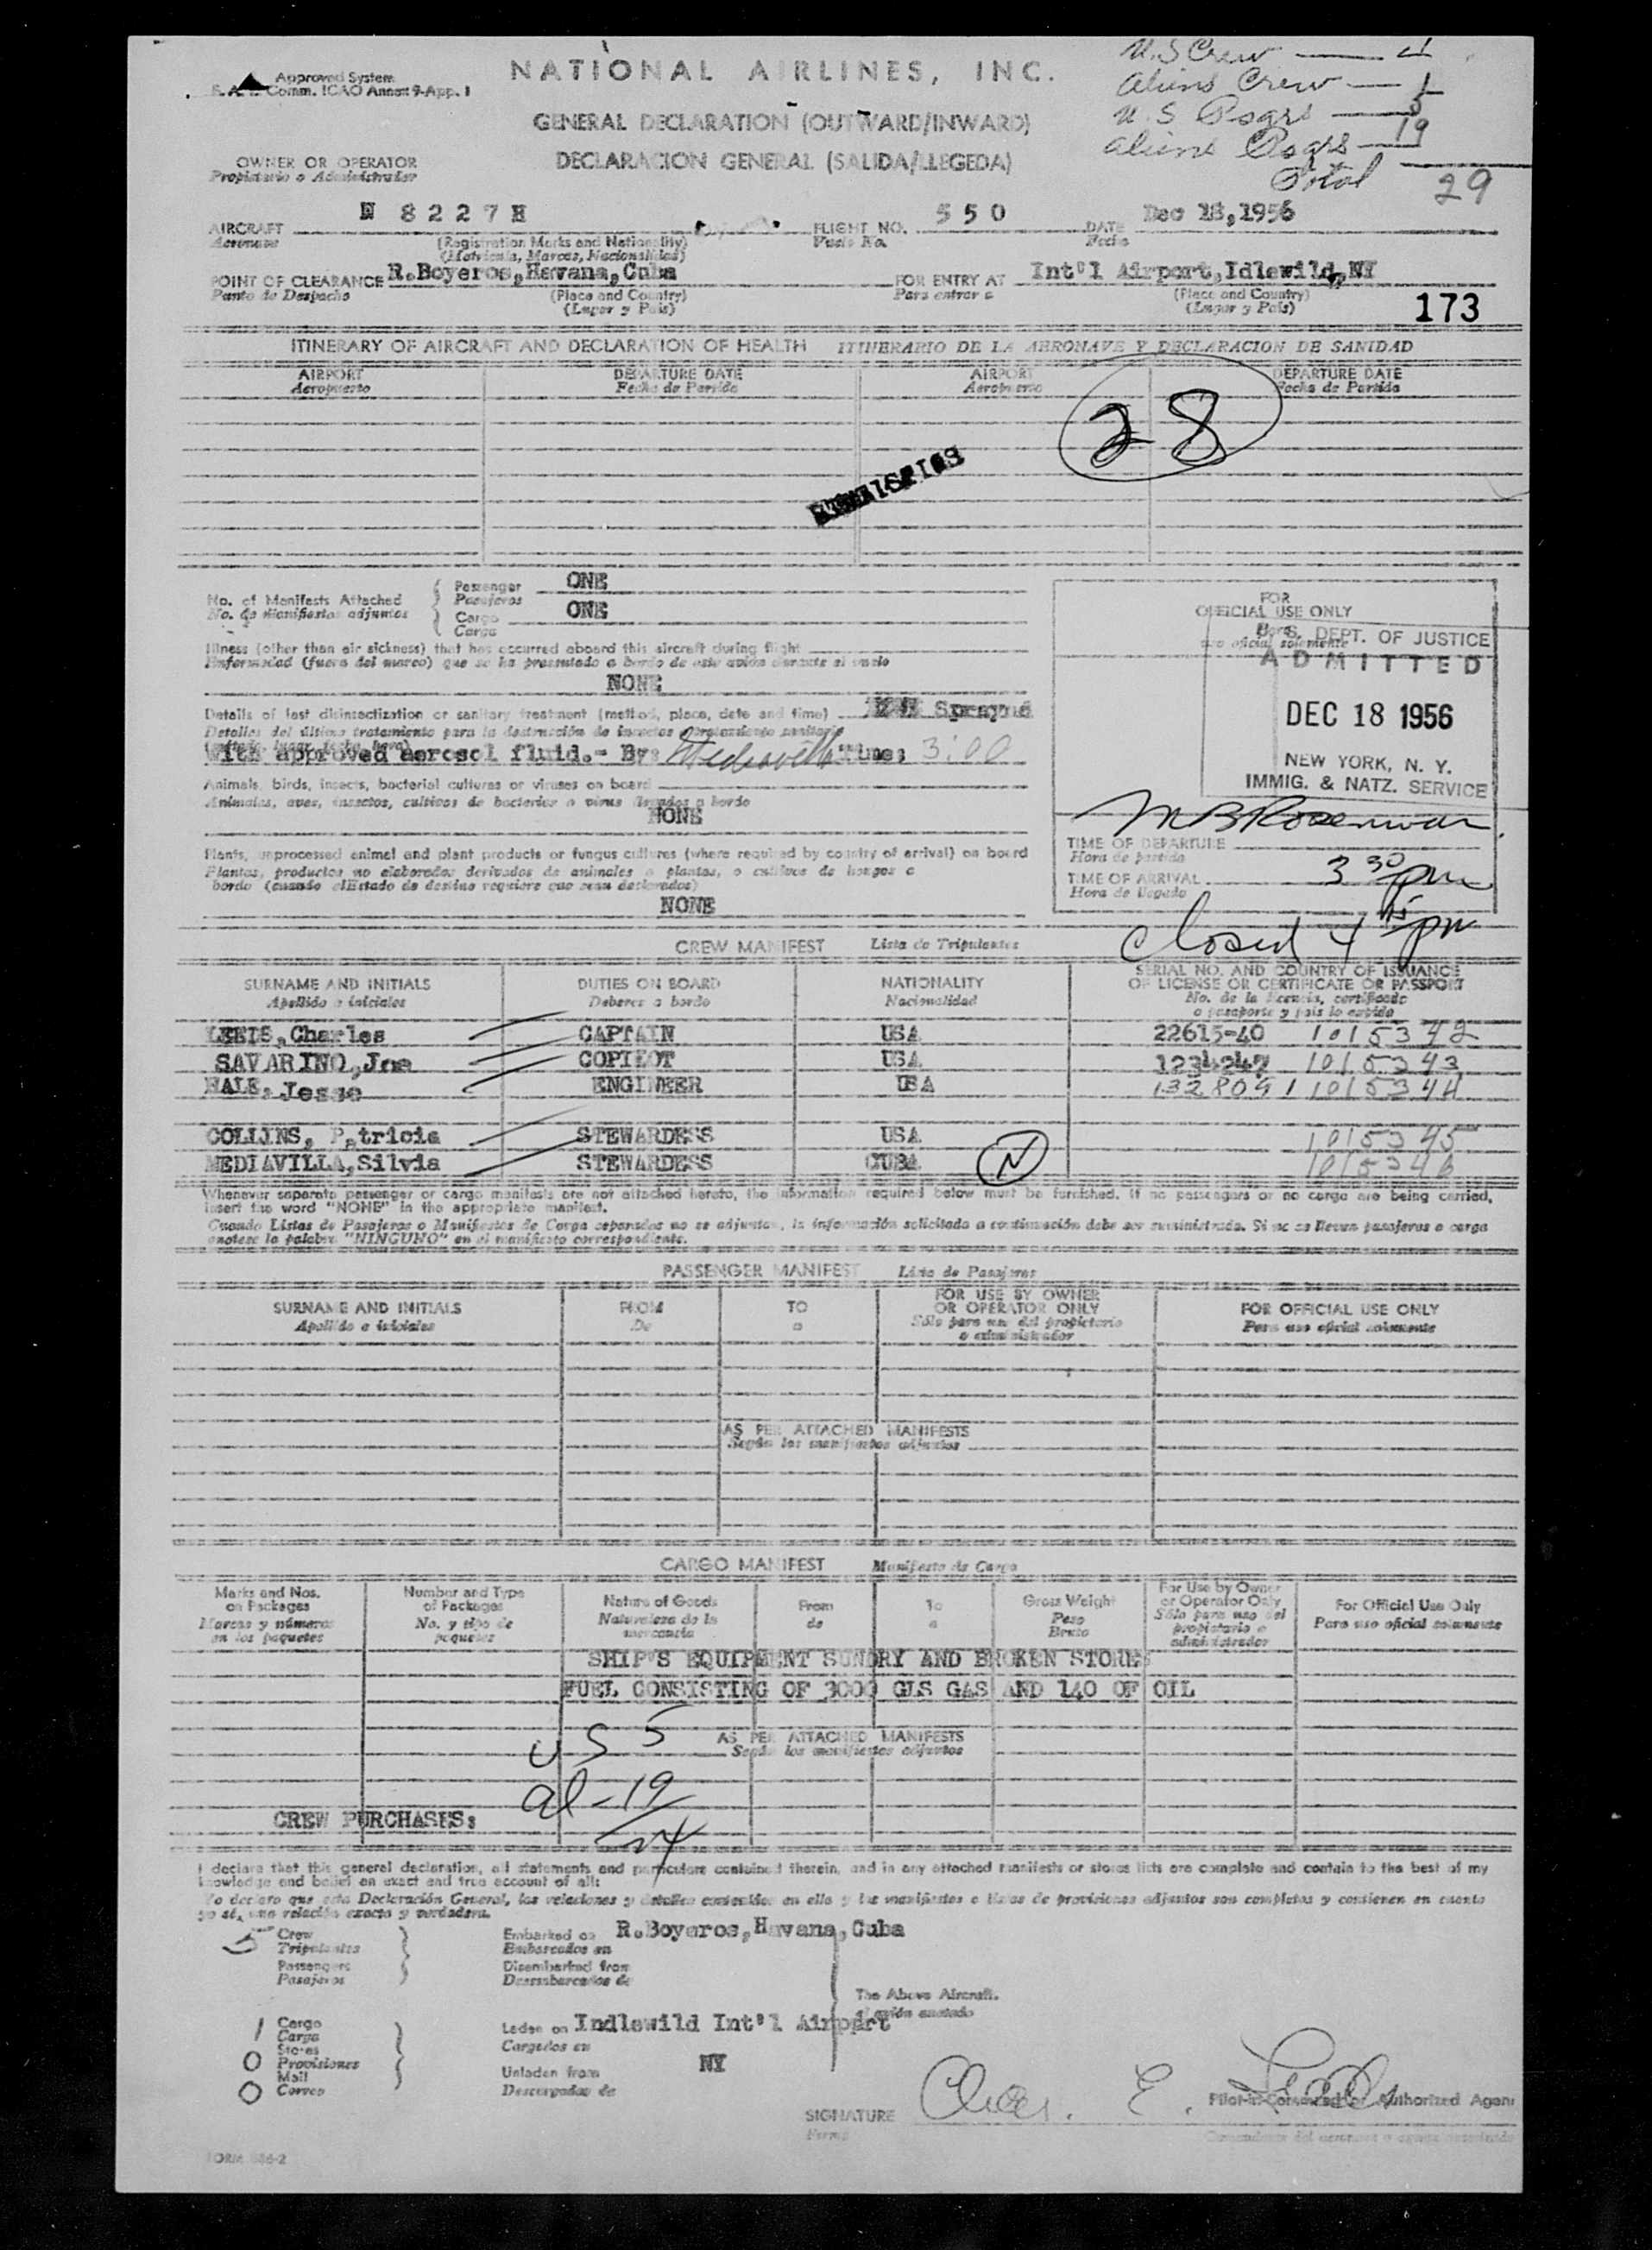 Approved System
Comm. ICAO Annex 9-App. 1
NATIONAL AIRLINES, INC.
GENERAL DECLARATION (OUTWARD/INWARD)
DECLARACION GENERAL (SALIDA/LLEGEDA)
U.S Crew — 4
Aliens Crew — 1
U.S Psgrs — 5
Aliens Psgrs — 19
Total 29
OWNER OR OPERATOR
Propietario o Administrador
AIRCRAFT N 8227H FLIGHT NO. 550 DATE Dec 18, 1956
Aeronave Vuelo No. Fecha
(Registration Marks and Nationality)
(Matricula, Marcas, Nacionalidad)
POINT OF CLEARANCE R.Boyeros, Havana, Cuba FOR ENTRY AT Int'l Airport, Idlewild, NY
Punto de Despacho (Place and Country) Para entrar a (Place and Country)
(Lugar y Pais) (Lugar y Pais)
173
ITINERARY OF AIRCRAFT AND DECLARATION OF HEALTH ITINERARIO DE LA AERONAVE Y DECLARACION DE SANIDAD
AIRPORT DEPARTURE DATE AIRPORT DEPARTURE DATE
Aeropuerto Fecha de Partida Aeropuerto Fecha de Partida
28
No. of Manifests Attached Passenger ONE
No. de manifiestos adjuntos Pasajeros
Cargo ONE
Carga
Illness (other than air sickness) that has occurred aboard this aircraft during flight
Enfermedad (fuera del mareo) que se ha presentado a bordo de este avión durante el vuelo
NONE
Details of last disinsectization or sanitary treatment (method, place, date and time) Sprayed
Detalles del último tratamiento para la destrucción de insectos o tratamiento sanitario
with approved Aerosol fluid.- By: Mediavilla Time: 3:00
Animals, birds, insects, bacterial cultures or viruses on board
Animales, aves, insectos, cultivos de bacterias o virus llevados a bordo
NONE
Plants, unprocessed animal and plant products or fungus cultures (where required by country of arrival) on board
Plantas, productos no elaborados derivados de animales o plantas, o cultivos de hongos a
bordo (cuando elEstado de destino requiere que sean declarados)
NONE
FOR
OFFICIAL USE ONLY
Para
uso oficial solamente
U.S. DEPT. OF JUSTICE
ADMITTED
DEC 18 1956
NEW YORK, N. Y.
IMMIG. & NATZ. SERVICE
TIME OF DEPARTURE
Hora de partida
TIME OF ARRIVAL 3 30 pm
Hora de llegada
Closed 4 15 pm
CREW MANIFEST Lista de Tripulantes
SURNAME AND INITIALS DUTIES ON BOARD NATIONALITY SERIAL NO. AND COUNTRY OF ISSUANCE
OF LICENSE OR CERTIFICATE OR PASSPORT
Apellido e iniciales Deberes a bordo Nacionalidad No. de la licencia, certificado
o pasaporte y pais lo expide
Charles CAPTAIN USA 22615-40 1015342
SAVARINO, Joe COPILOT USA 1234247 1015343
HALE, Jesse ENGINEER USA 1328091 1015344
COLLINS, Patricia STEWARDESS USA 1015345
MEDIAVILLA, Silvia STEWARDESS CUBA N 1015346
Whenever separate passenger or cargo manifests are not attached hereto, the information required below must be furnished. If no passengers or no cargo are being carried,
insert the word "NONE" in the appropriate manifest.
Cuando Listas de Pasajeros o Manifiestos de Carga separados no se adjuntan, la información solicitada a continuación debe ser suministrada. Si no se llevan pasajeros o carga
anotese la palabra "NINGUNO" en el manifiesto correspondiente.
PASSENGER MANIFEST Lista de Pasajeros
SURNAME AND INITIALS FROM TO FOR USE BY OWNER
OR OPERATOR ONLY FOR OFFICIAL USE ONLY
Apellido e iniciales De a Sólo para uso del propietario
o administrador Para uso oficial solamente
AS PER ATTACHED MANIFESTS
Según los manifiestos adjuntos
CARGO MANIFEST Manifiesto de Carga
Marks and Nos.
on Packages
Marcas y números
en los paquetes
Number and Type
of Packages
No. y tipo de
paquetes
Nature of Goods
Naturaleza de la
mercancía
From
de
To
a
Gross Weight
Peso
Bruto
For Use by Owner
or Operator Only
Sólo para uso del
propietario o
administrador
For Official Use Only
Para uso oficial solamente
SHIP'S EQUIPMENT SUNDRY AND BROKEN STORES
FUEL CONSISTING OF 3000 GLS GAS AND 140 OF OIL
US 5
AS PER ATTACHED MANIFESTS
Según los manifiestos adjuntos
al - 19
24
CREW PURCHASES:
I declare that this general declaration, all statements and particulars contained therein, and in any attached manifests or stores lists are complete and contain to the best of my
knowledge and belief an exact and true account of all:
Yo declaro que esta Declaración General, las relaciones y detalles contenidos en ella y los manifiestos o listas de provisiones adjuntos son completas y contienen en cuanto
yo sé, una relación exacta y verdadera.
5 Crew Embarked on R.Boyeros, Havana, Cuba
Tripulantes Embarcados en
Passengers Disembarked from
Pasajeros Desembarcados de
The Above Aircraft.
el avión anotado
1 Cargo Laden on Indlewild Int'l Airport
Carga Cargados en
Stores
0 Provisiones NY
Mail Unladen from
0 Correo Descargados de
SIGNATURE Chas. E.
Firma
Pilot-in-Command or Authorized Agent
FORM 886-2